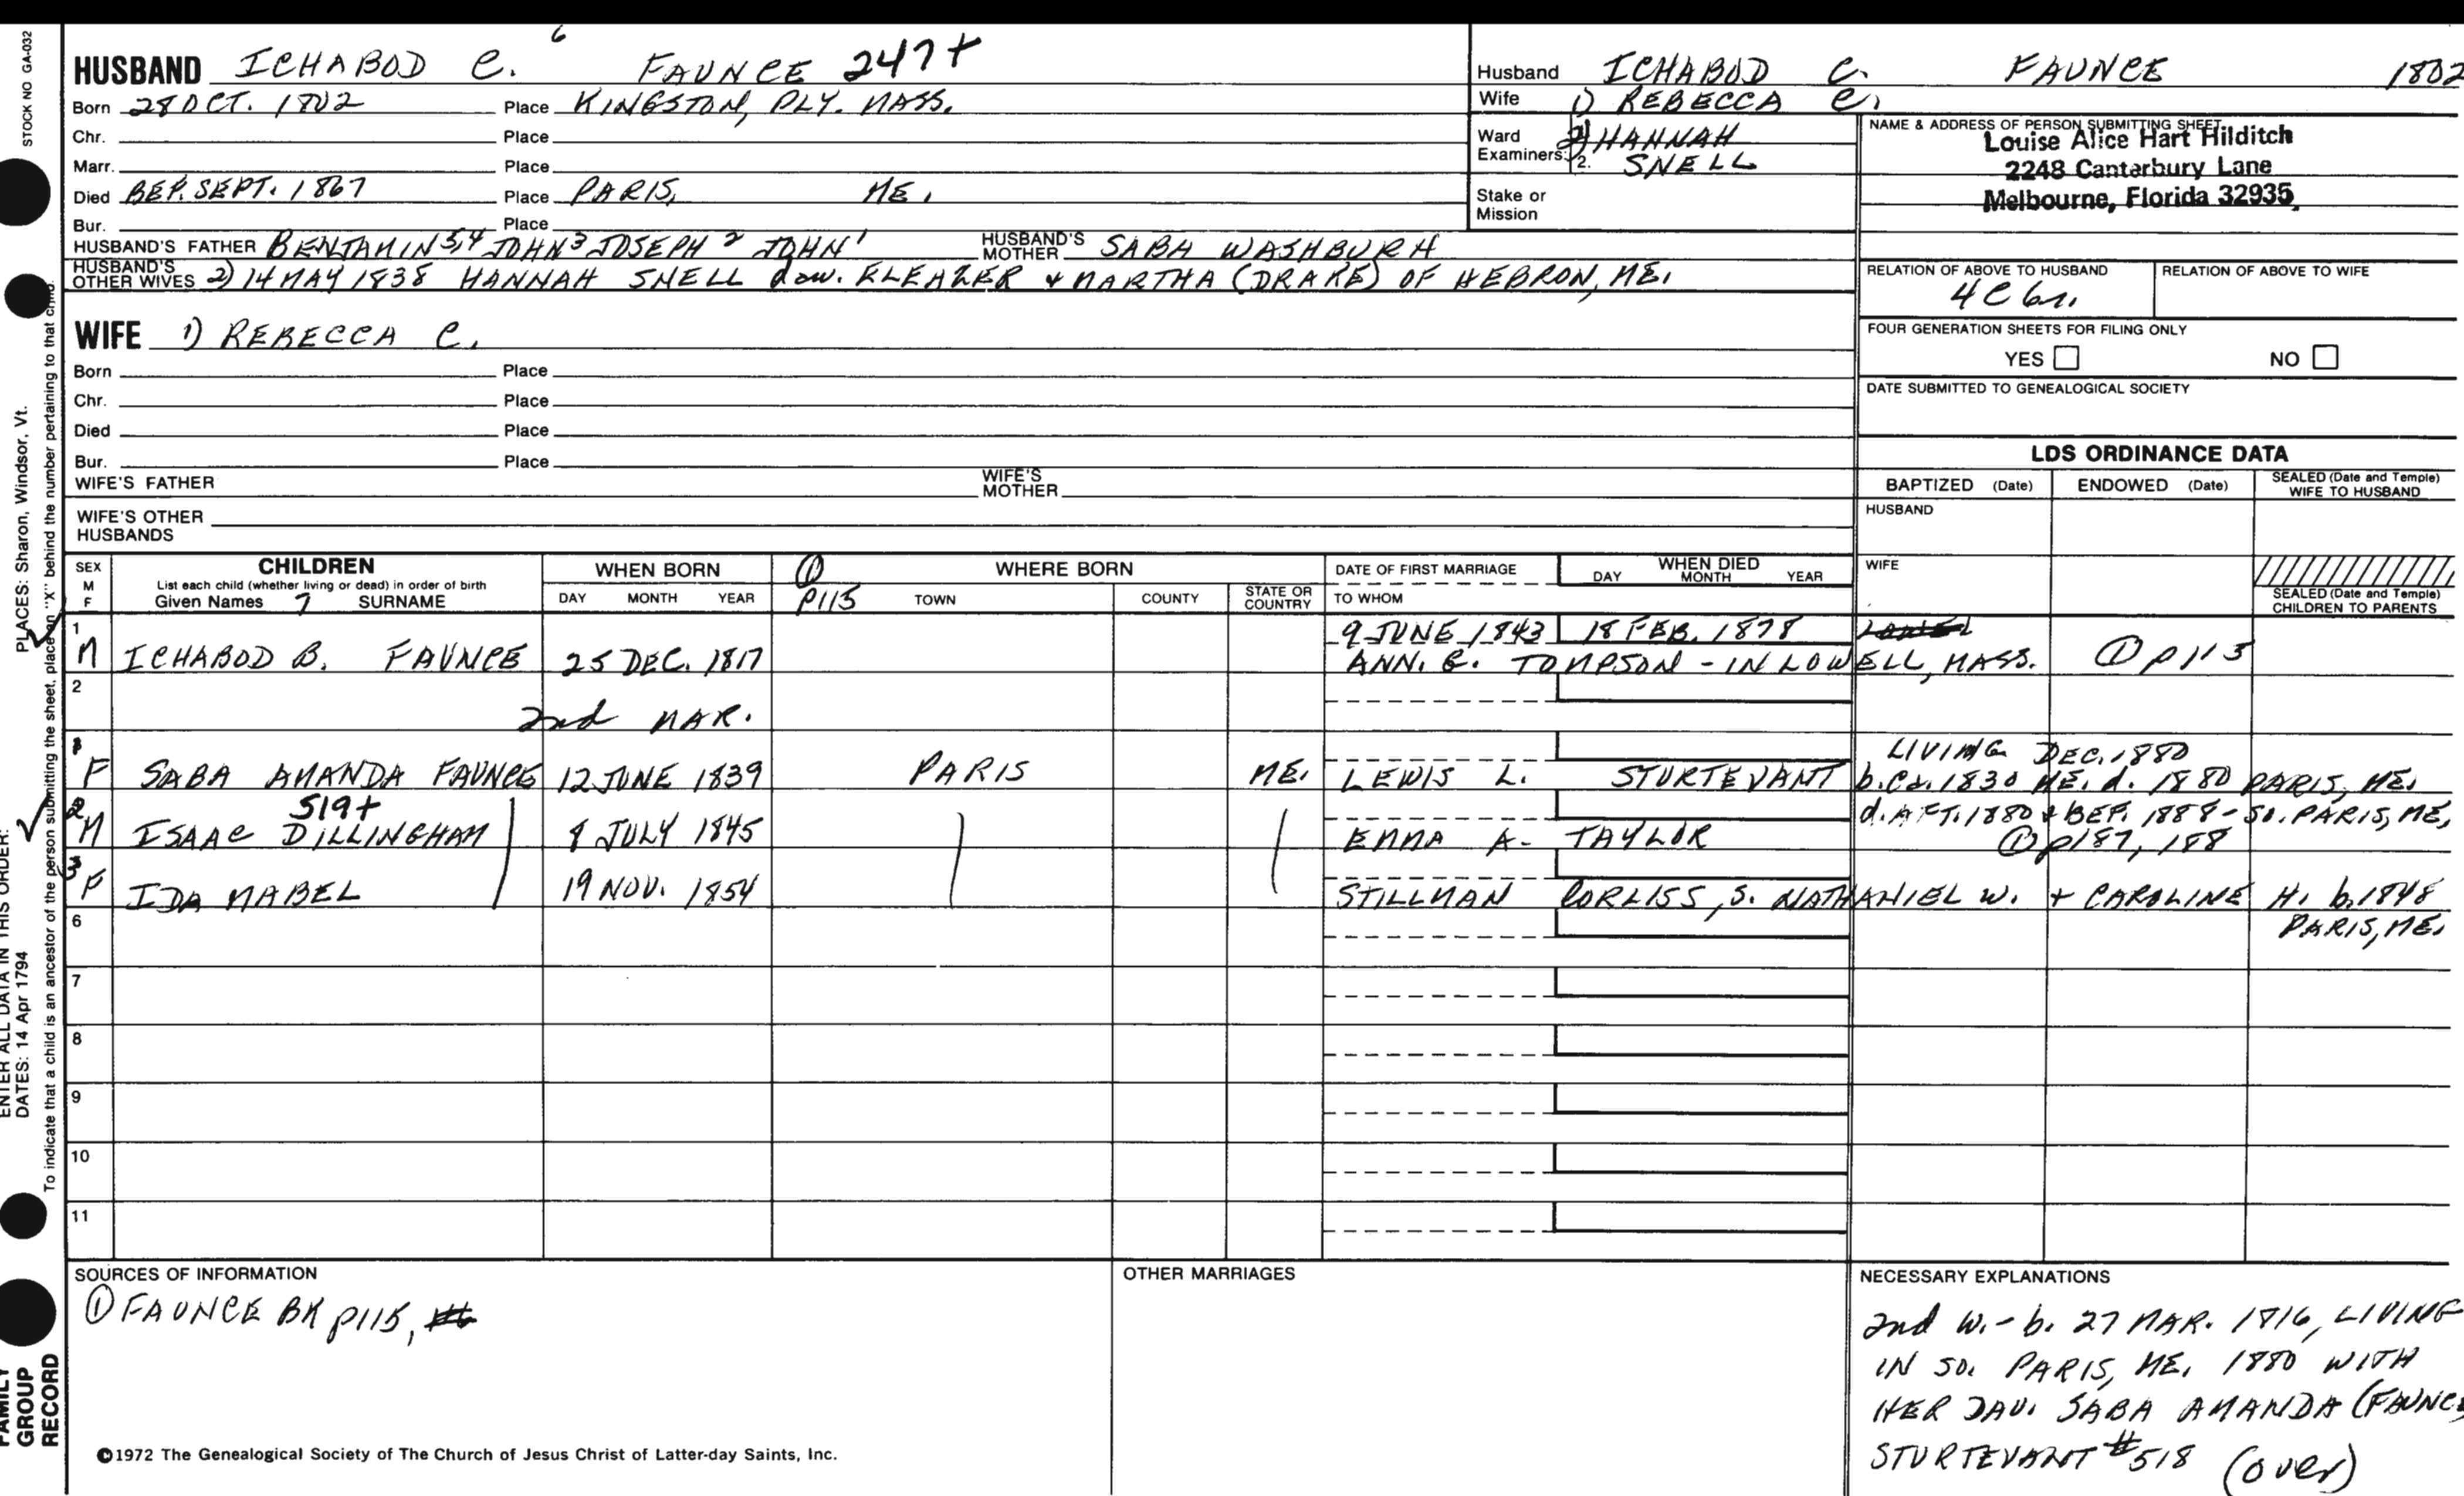 STOCK NO GA-032
PLACES: Sharon, Windsor, Vt.
ENTER ALL DATA IN THIS ORDER:
DATES: 14 Apr 1794
To indicate that a child is an ancestor of the person submitting the sheet, place an "X" behind the number pertaining to that child.
FAMILY GROUP RECORD
HUSBAND ICHABOD C. 6 FAUNCE 247+
Born 28 OCT. 1802 Place KINGSTON, PLY. MASS.
Chr. Place
Marr. Place
Died BEF. SEPT. 1867 Place PARIS, ME.
Bur. Place
HUSBAND'S FATHER BENJAMIN 5,4 JOHN 3 JOSEPH 2 JOHN 1 HUSBAND'S MOTHER SABA WASHBURN
HUSBAND'S OTHER WIVES 2) 14 MAY 1838 HANNAH SNELL daw. ELEAZER & MARTHA (DRAKE) OF HEBRON, ME.
WIFE 1) REBECCA C.
Born Place
Chr. Place
Died Place
Bur. Place
WIFE'S FATHER WIFE'S MOTHER
WIFE'S OTHER HUSBANDS
Husband ICHABOD C. FAUNCE 1802
Wife 1) REBECCA C.
Ward 2) HANNAH
Examiners: 2. SNELL
Stake or Mission
NAME & ADDRESS OF PERSON SUBMITTING SHEET
Louise Alice Hart Hilditch
2248 Canterbury Lane
Melbourne, Florida 32935
RELATION OF ABOVE TO HUSBAND RELATION OF ABOVE TO WIFE
4C 6r.
FOUR GENERATION SHEETS FOR FILING ONLY
YES NO
DATE SUBMITTED TO GENEALOGICAL SOCIETY
LDS ORDINANCE DATA
BAPTIZED (Date) ENDOWED (Date) SEALED (Date and Temple) WIFE TO HUSBAND
HUSBAND
WIFE
SEALED (Date and Temple) CHILDREN TO PARENTS
SEX M F
CHILDREN
List each child (whether living or dead) in order of birth
Given Names 7 SURNAME
WHEN BORN
DAY MONTH YEAR
① p115
WHERE BORN
TOWN COUNTY STATE OR COUNTRY
DATE OF FIRST MARRIAGE
TO WHOM
WHEN DIED
DAY MONTH YEAR
1 9 JUNE 1843 18 FEB. 1878
M ICHABOD B. FAUNCE 25 DEC. 1817 ANN. E. TOMPSON - IN LOWELL, MASS. ① p 113
2
2nd MAR.
1 LIVING DEC. 1880
F SABA AMANDA FAUNCE 12 JUNE 1839 PARIS ME. LEWIS L. STURTEVANT b. Ca. 1830 ME. d. 1880 PARIS, ME.
2 519+ d. AFT. 1880 & BEF. 1888 - SO. PARIS, ME,
M ISAAC DILLINGHAM 8 JULY 1845 EMMA A. TAYLOR ① p187, 188
3 F IDA MABEL 19 NOV. 1854 STILLMAN CORLISS, S. NATHANIEL W. + CAROLINE H. b. 1848
PARIS, ME.
6
7
8
9
10
11
SOURCES OF INFORMATION
① FAUNCE BK p115,
OTHER MARRIAGES
NECESSARY EXPLANATIONS
2nd W. - b. 27 MAR. 1816, LIVING
IN SO. PARIS, ME. 1880 WITH
HER DAU. SABA AMANDA (FAUNCE
STURTEVANT #518 (over)
©1972 The Genealogical Society of The Church of Jesus Christ of Latter-day Saints, Inc.